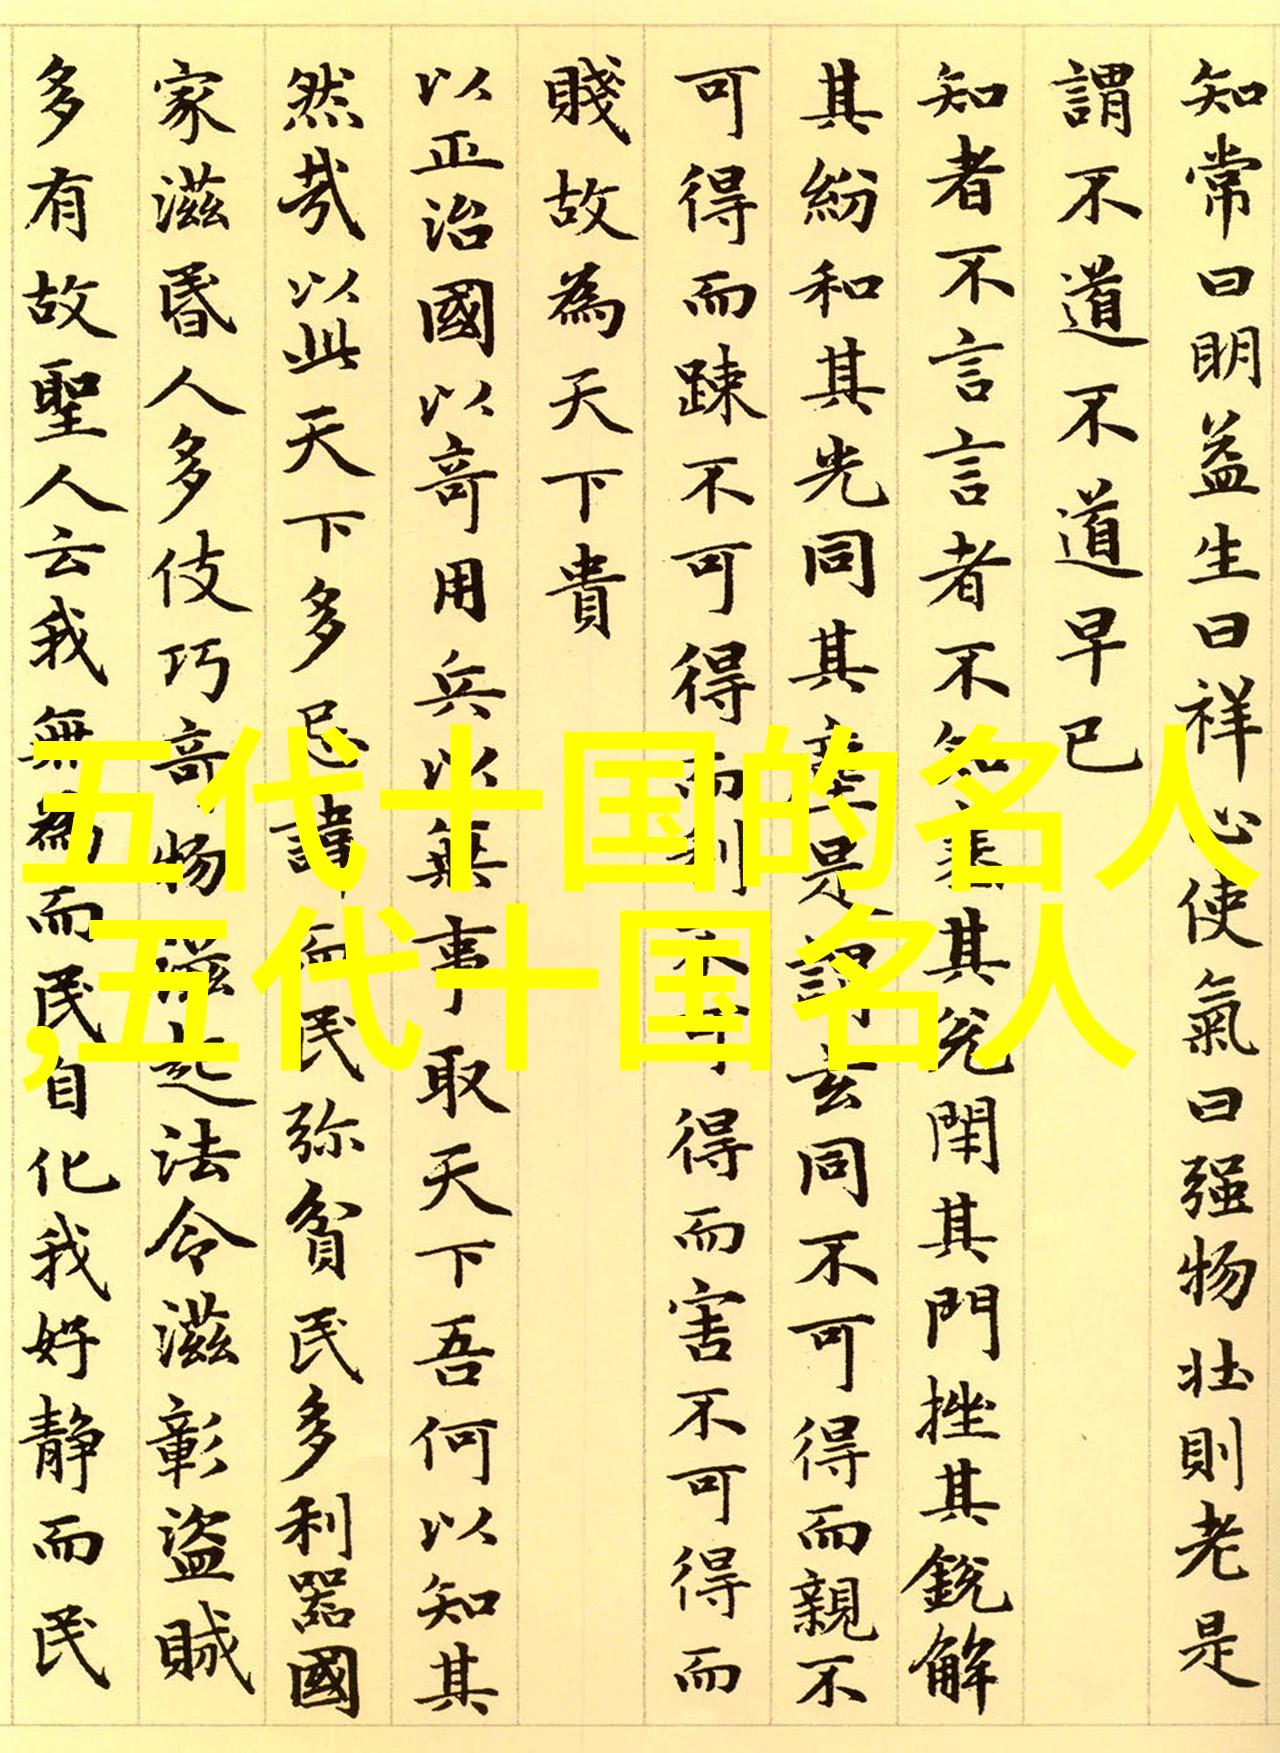 知常曰明益生曰祥心使氣曰强物壯則老是
謂不道不道早已
知者不言言者不知塞其兊閇其門挫其銳解
其紛和其光同其塵是謂玄同不可得而親不
可得而踈不可得而利不可得而害不可得而
賤故為天下貴
以正治國以竒用兵以無事取天下吾何以知其
然㢤以此天下多忌諱而民弥貧民多利器國
家滋昬人多伎巧竒物滋起法令滋彰盜賊
多有故聖人云我無為而民自化我好静而民
五代十国的名人
,五代十国名人